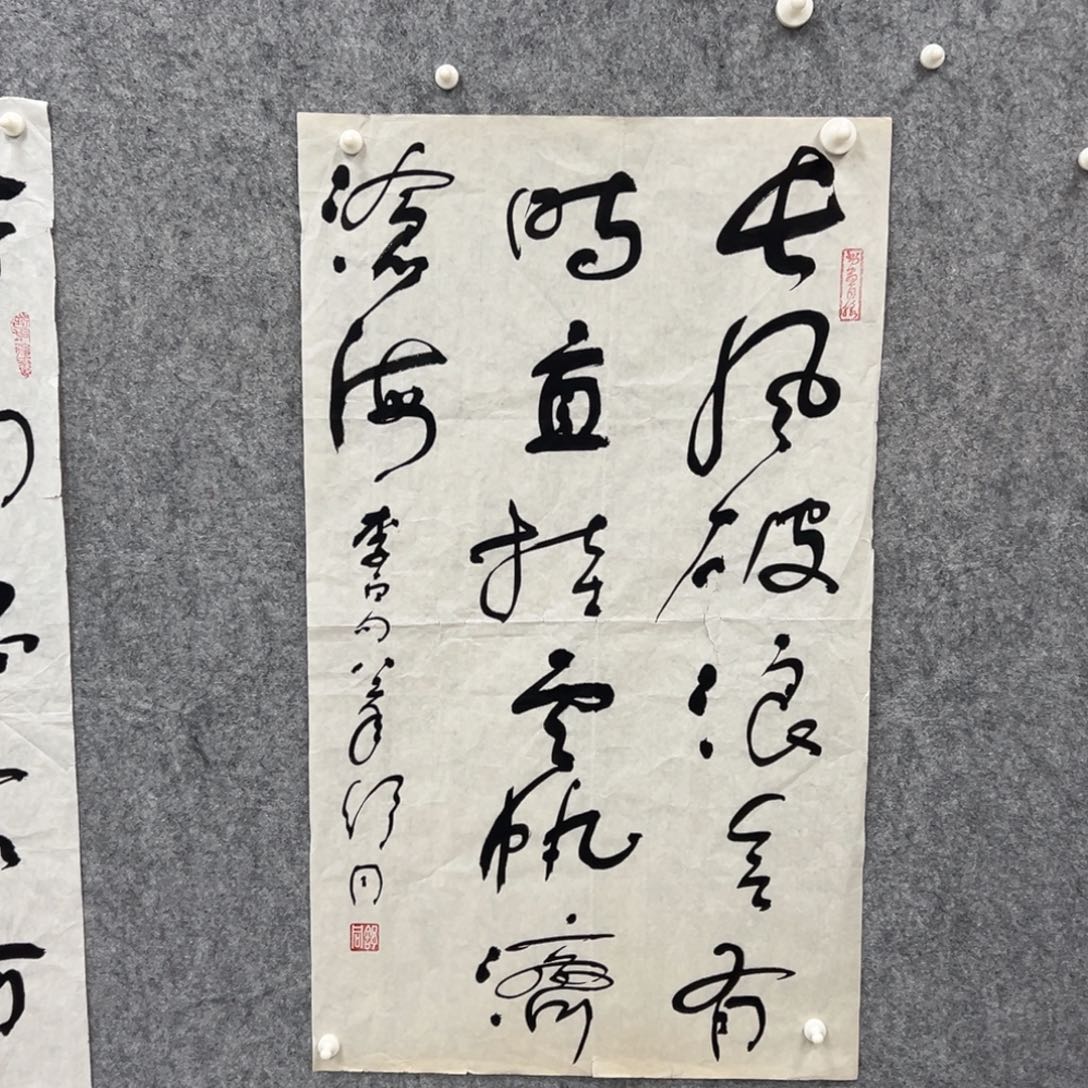 長風破浪會有
時直挂雲帆濟
滄海
李白句 舒同
舒同